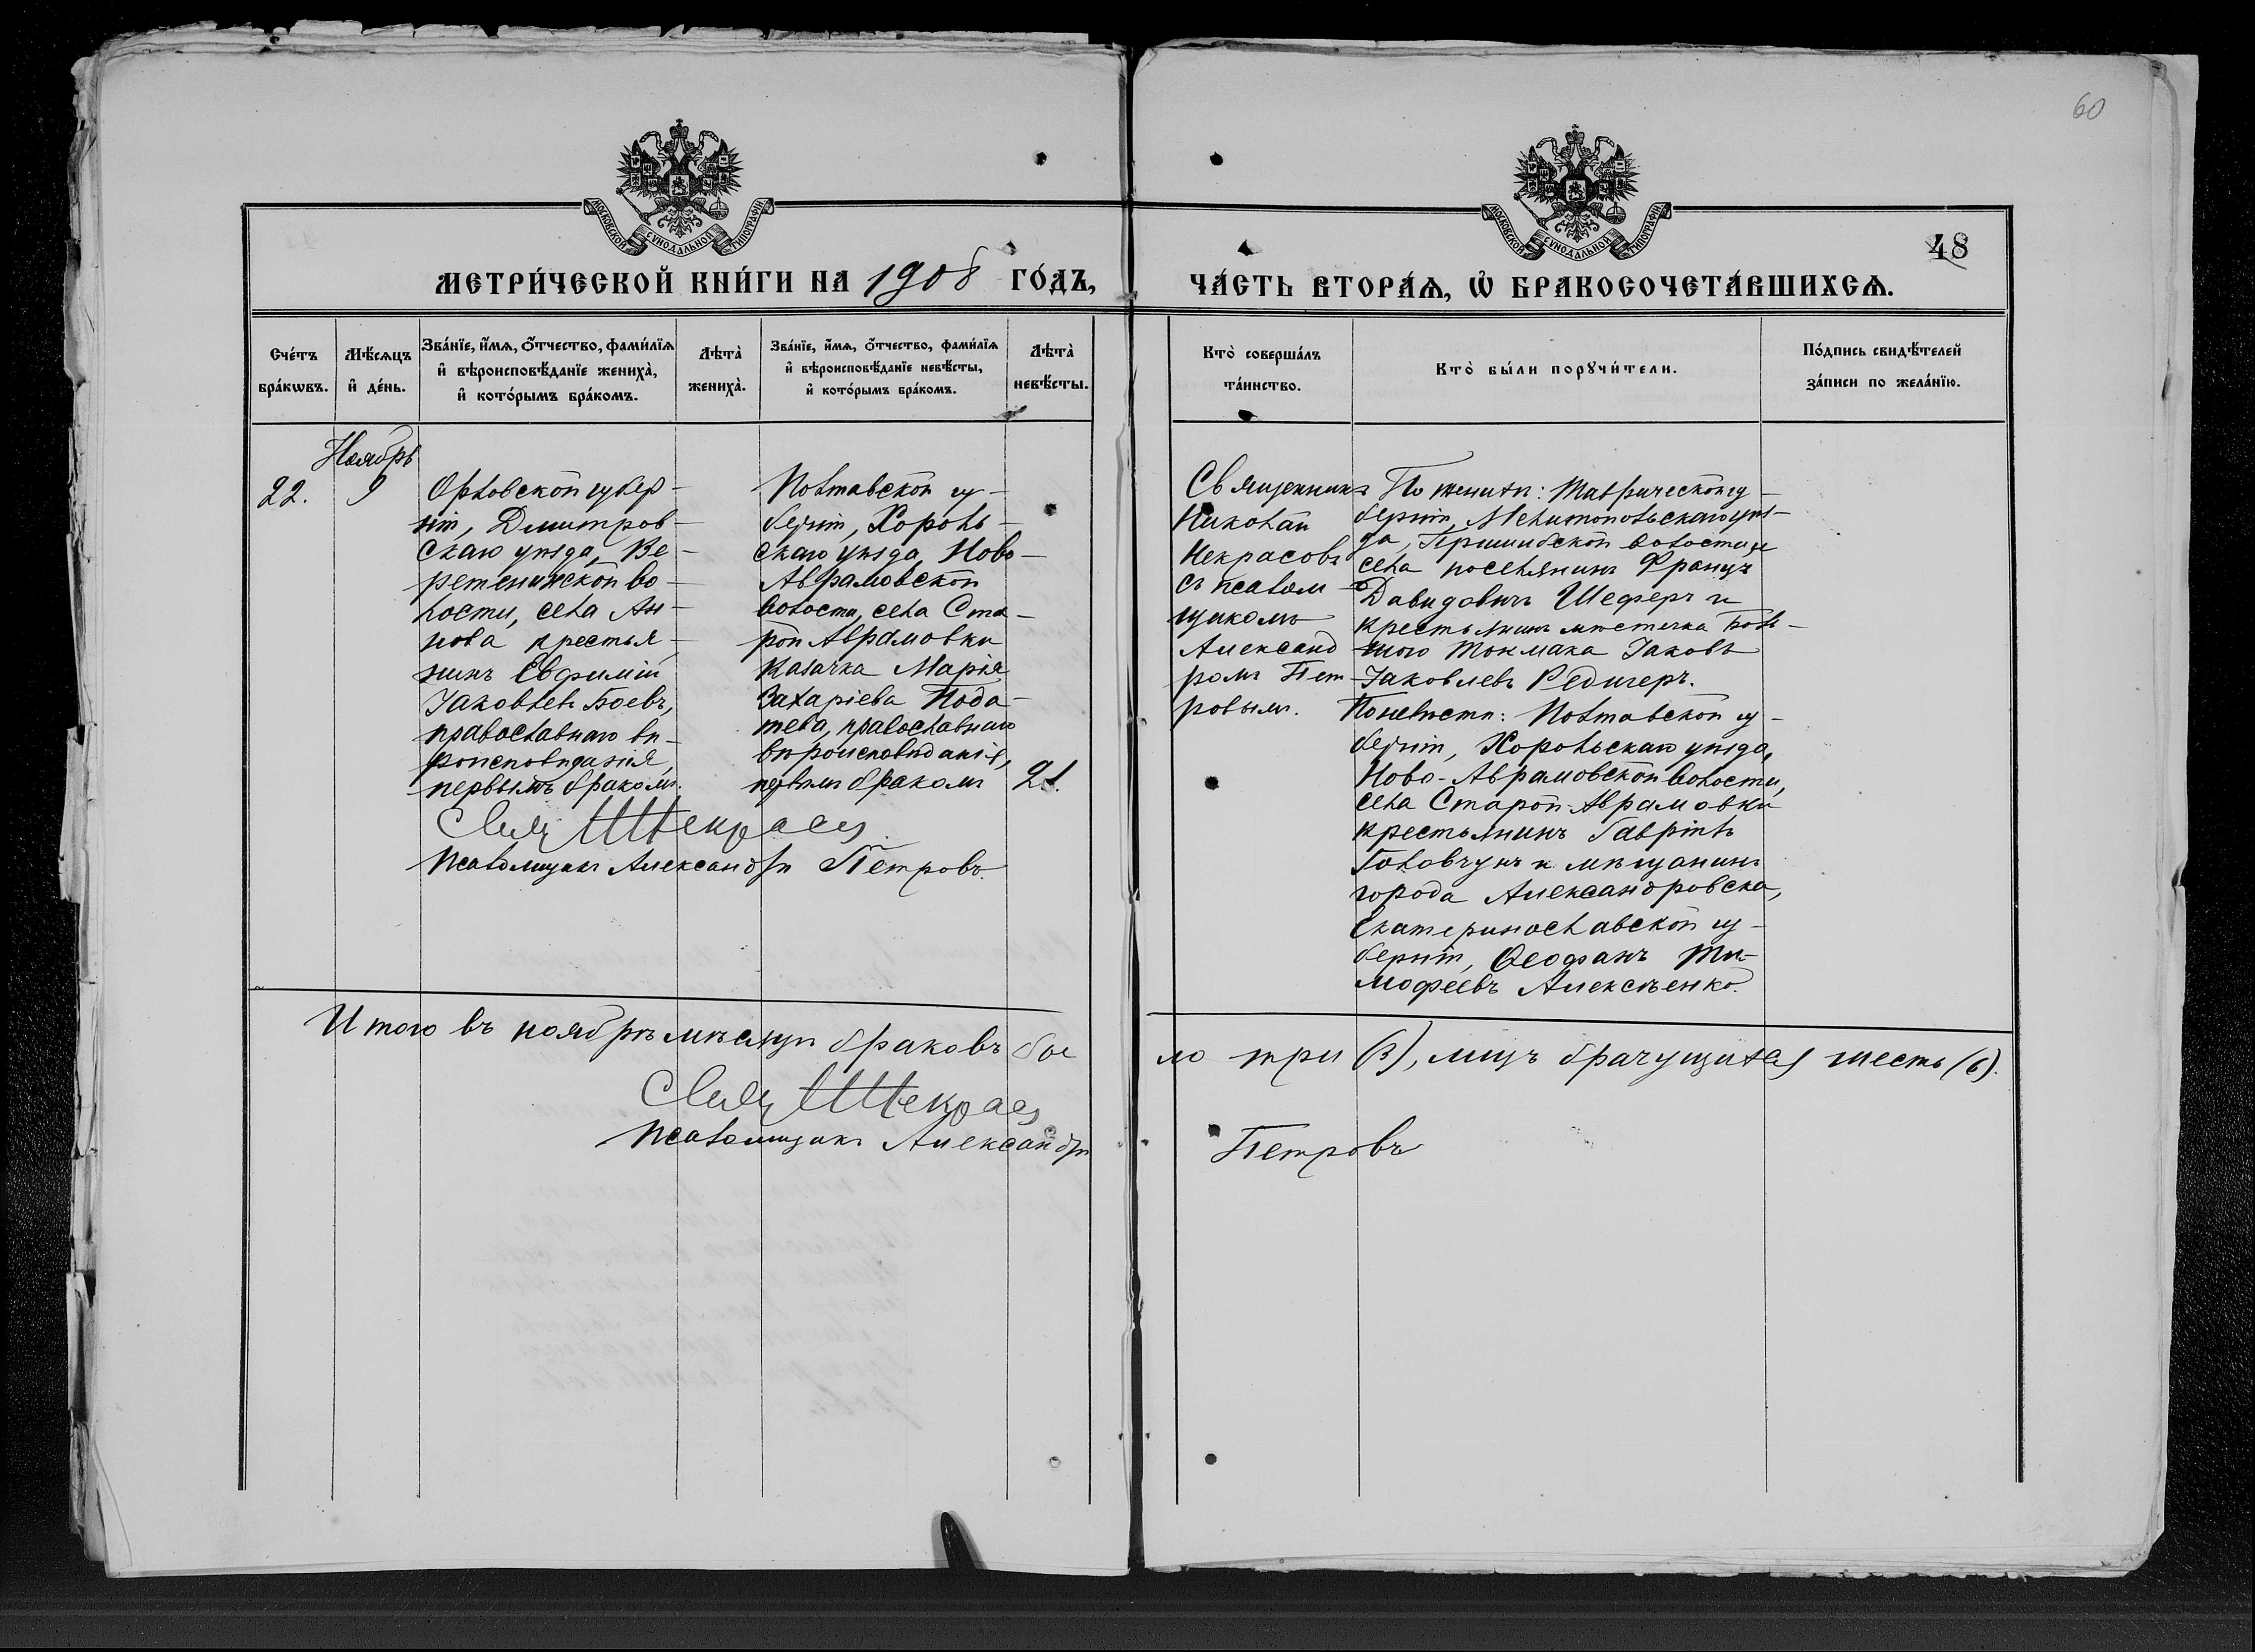 60
МОСКОВСКОЙ СѴНОДАЛЬНОЙ ТИПОГРАФІИ.
МОСКОВСКОЙ СѴНОДАЛЬНОЙ ТИПОГРАФІИ.
48
МЕТРИ́ЧЕСКОЙ КНИ́ГИ НА 1908 ГО́ДЪ,
ЧА́СТЬ ВТОРА́Ѧ, Ѡ҆ БРАКОСОЧЕТА́ВШИХСѦ.
Сче́тъ
бра́кѡвъ.
Мѣ́сѧцъ
и҆ де́нь.
Зва́нїе, и҆́мѧ, ѻ҆́тчество, фами́лїѧ
и҆ вѣроисповѣ́данїе жениха̀,
и҆ кото́рымъ бра́комъ.
Лѣта̀
жениха̀.
Зва́нїе, и҆́мѧ, ѻ҆́тчество, фами́лїѧ
и҆ вѣроисповѣ́данїе невѣ́сты,
и҆ кото́рымъ бра́комъ.
Лѣта̀
невѣ́сты.
Кто̀ соверша́лъ
та́инство.
Кто̀ бы́ли порꙋчи́тели.
По́дпись свидѣ́телей
за́писи по жела́нїю.
Ноябрь
22.
9
Орловской губер-
ніи, Дмитров-
скаго уѣзда, Ве-
ретенинской во-
лости, села Ан-
нова крестья-
нинъ Евфимій
Іаковлевъ Боевъ,
православнаго вѣ-
роисповѣданія,
первымъ бракомъ.
Полтавской гу-
берніи, Хороль-
скаго уѣзда, Ново-
Аврамовской
волости, села Ста-
рой Аврамовки
казачка Марія
Захаріева Пода-
тева, православнаго
вѣроисповѣданія,
первымъ бракомъ
21.
Псаломщикъ Александръ Петровъ.
Священникъ
Николай
Некрасовъ
съ псалом-
щикомъ
Александ
ромъ Пет-
ровымъ.
По женихѣ: Таврической гу-
берніи, Мелитопольскаго уѣз-
да, Пришибской волости и
села поселянинъ Францъ
Давидовичъ Шеферъ и
крестьянинъ мѣстечка Боль-
шого Токмака Іаковъ
Іаковлевъ Редигеръ.
По невѣстѣ: Полтавской гу-
берніи, Хорольскаго уѣзда,
Ново-Аврамовской волости,
села Старой-Аврамовки
крестьянинъ Гавріилъ
Головчунъ и мѣщанинъ
города Александровска,
Екатеринославской гу-
берніи, Ѳеофанъ Ти-
мофеевъ Алексѣенко.
Итого въ ноябрѣ мѣсяцѣ браковъ бы
ло три (3), лицъ брачущихся шесть (6).
Псаломщикъ Александръ
Петровъ